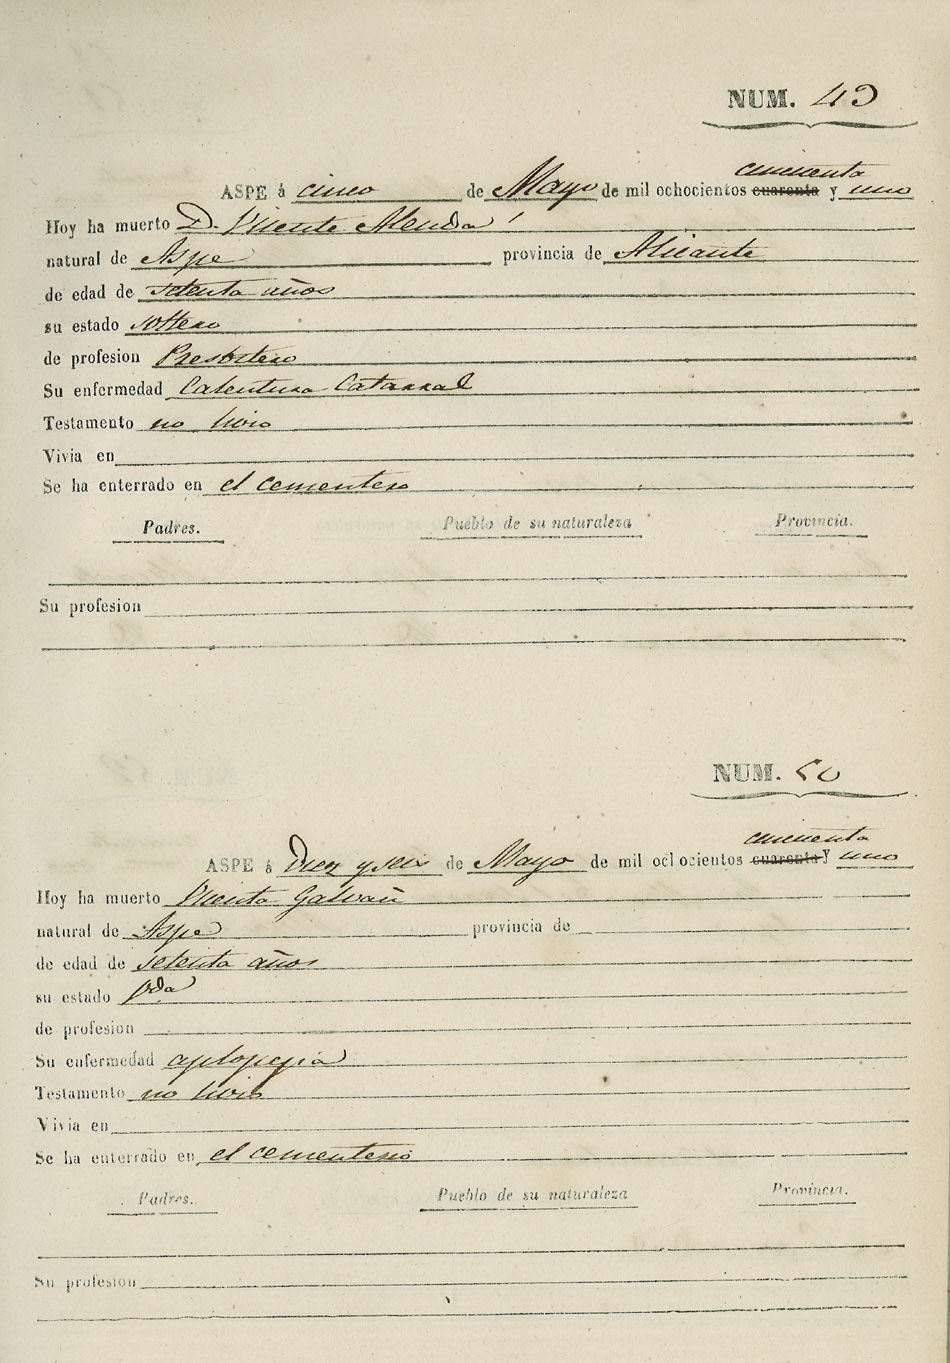 NUM. 49
cincuenta
ASPE á cinco de Mayo de mil ochocientos cuarenta y uno
Hoy ha muerto D. Vicente Alenda
natural de Aspe provincia de Alicante
de edad de setenta años
su estado soltero
de profesion Presbitero
Su enfermedad Calentura Catarral
Testamento no hizo
Vivia en
Se ha enterrado en el cementerio
Padres. Pueblo de su naturaleza Provincia.
Su profesion
NUM. 50
cincuenta
ASPE á Diez y seis de Mayo de mil ochocientos cuarenta y uno
Hoy ha muerto Vicenta Galvañ
natural de Aspe provincia de
de edad de setenta años
su estado Vda
de profesion
Su enfermedad aplopegia
Testamento no hizo
Vivia en
Se ha enterrado en el cementerio
Padres. Pueblo de su naturaleza Provincia.
Su profesion